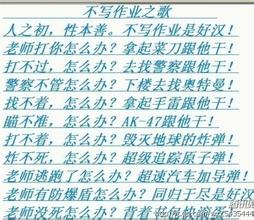 不写作业之歌
人之初，性本善。不写作业是好汉！
老师打你怎么办？拿起菜刀跟他干！
打不过，怎么办？去找警察跟他干！
警察不管怎么办？下楼去找奥特曼！
找不着，怎么办？拿起手雷跟他干！
瞄不准，怎么办？AK-47跟他干！
打不着，怎么办？毁灭地球的炸弹！
炸不死，怎么办？超级追踪原子弹！
老师逃跑了怎么办？超速汽车加导弹！
老师有防爆盾怎么办？同归于尽是好汉
老师没死怎么办？背着